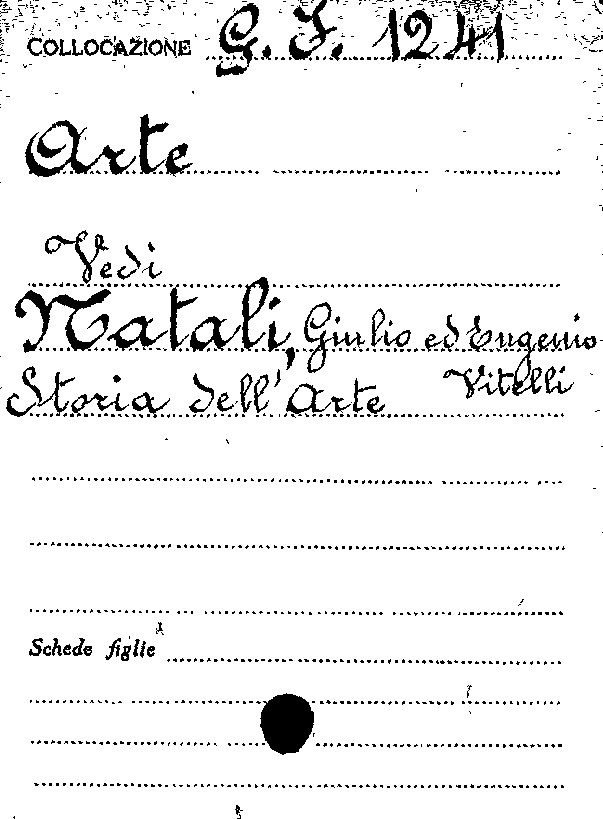 COLLOCAZIONE G. F. 1241
Arte
Vedi
Natali, Giulio ed Eugenio
Storia dell'Arte Vitelli
Schede figlie